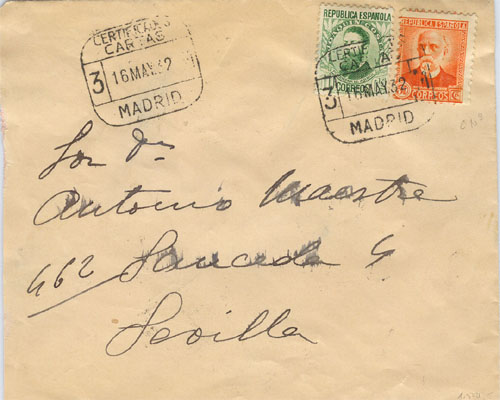 CERTIFICADO
CARTAS
3
16 MAY.32
MADRID
REPUBLICA ESPAÑOLA
CORREOS
REPUBLICA ESPAÑOLA
CORREOS
CARTAS
3
16 MAY.32
MADRID
Sor Dn
Antonio Maestre
462 Sauceda 4
Sevilla